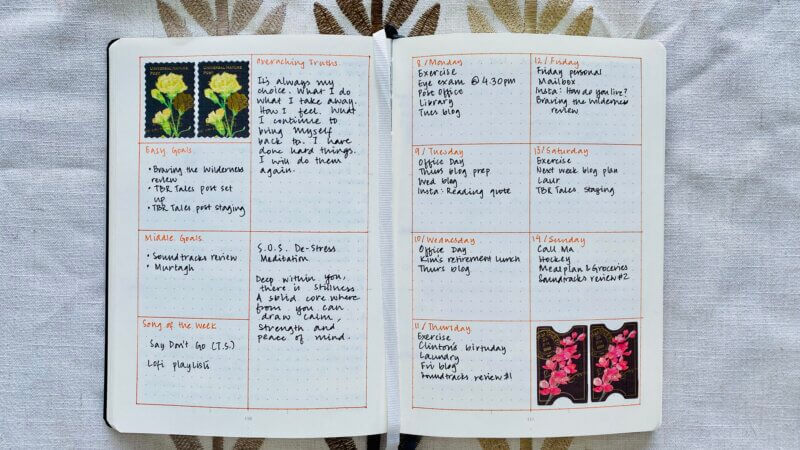 UNIVERSAL NATURE
POST
Overarching Truths
It's always my
choice. What I do
what I take away.
How I feel. What
I continue to
bring myself
back to. I have
done hard things.
I will do them
again.
Easy Goals
• Braving the Wilderness
review
• TBR Tales post set
up
• TBR Tales post staging
Middle Goals
• Soundtracks review
• Murtagh
S.O.S. De-Stress
Meditation
Deep within you,
there is stillness
A solid core where
from you can
draw calm,
strength and
peace of mind.
Song of the Week
Say Don't Go (T.S.)
Lofi playlist
8/Monday
Exercise
Eye exam @ 4:30pm
Post Office
Library
Tues blog
9/Tuesday
Office Day
Thurs blog prep
Wed blog
Insta: Reading quote
10/Wednesday
Office Day
Kim's retirement lunch
Thurs blog
11/Thursday
Exercise
Clinton's birthday
Laundry
Fri blog
Soundtracks review #1
12/Friday
Friday personal
Mailbox
Insta: How do you live?
Braving the Wilderness
review
13/Saturday
Exercise
Next week blog plan
Laur
TBR Tales staging
14/Sunday
Call Ma
Hockey
Mealplan & Groceries
Soundtracks review #2